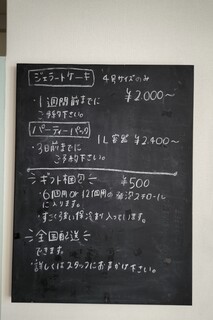 ジェラートケーキ 4号サイズのみ
¥2.000〜
・1週間前までに
ご予約下さい。
パーティーパック 1L 容器 ¥2.400〜
・3日前までに
ご予約下さい。
ギフト梱包 ¥500
・6個用or12個用の発泡スチロール
に入ります。
・すごく強い保冷剤入っています。
全国配送
できます。
・詳しくはスタッフにお声かけ下さい。